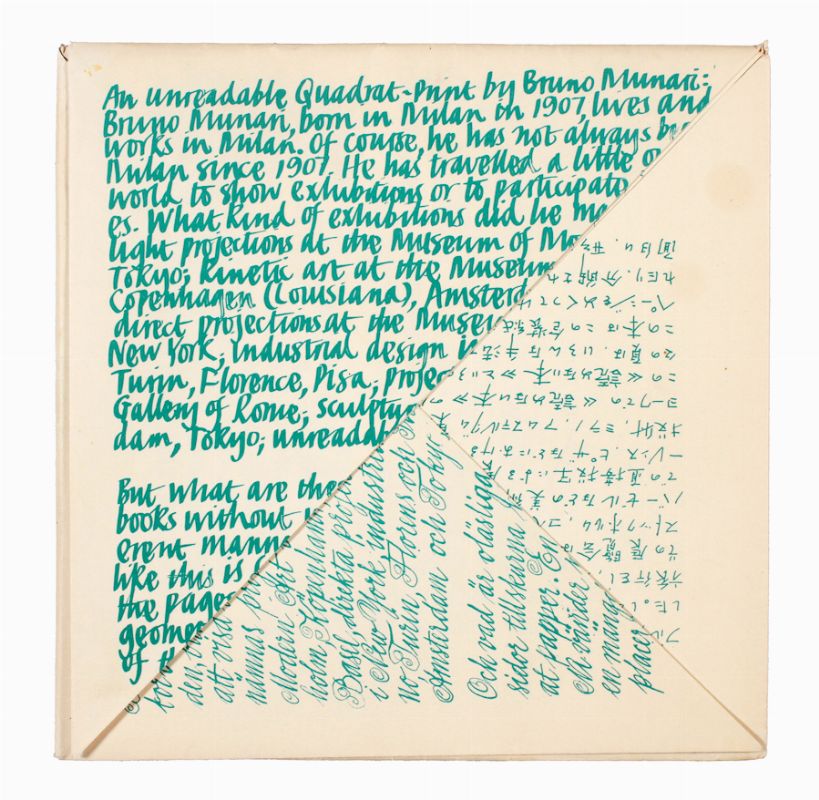 An unreadable Quadrat-Print by Bruno Munari:
Bruno Munari, born in Milan in 1907, lives and
works in Milan. Of course, he has not always be
Milan since 1907. He has travelled a little o
world to show exhibitions or to participate
es. What kind of exhibitions did he ma
light projections at the Museum of Mo
Tokyo; kinetic art at the Museum
Copenhagen (Louisiana), Amsterd
direct projections at the Museu
New York; industrial design i
Turin, Florence, Pisa; projec
Gallery of Rome; sculptu
dam, Tokyo; unreadab
But what are the
books without
erent mann
like this is
the pages
geomet
of th
den
att visa
Modern Art
holm, Köpenham
Basel, direkta proje
i New York, industri
no, Turin, Florens och
Amsterdam och Tokyo
Och vad är oläsliga
sidor tillskurna
at papper. En
vänder
en mängd
placer
した。し
旅行をし、
での展覧会は
ストックホルム、コ
バーゼルなどの美術
での直接投写による
レンス、ピザなどにおけ
投射、ミラノ、アムステルダム
ヨークでの≪読めない本≫の
この≪読めない本≫という
この本はこの包装紙
ページをめくってい
れたり、分